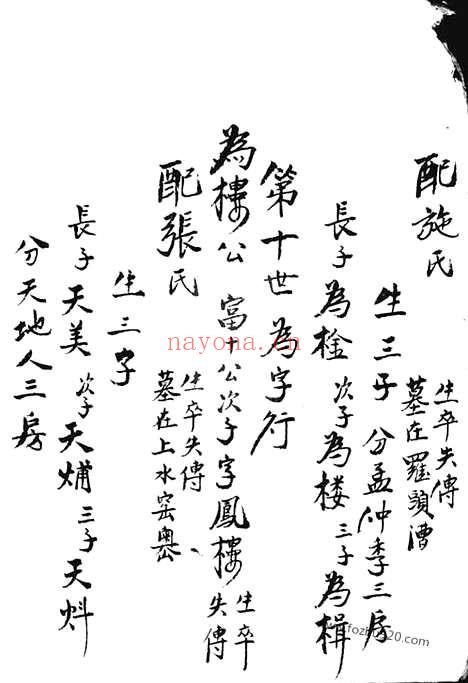 配施氏
生卒失傳
墓在羅頭漕
生三子 分孟仲季三房
長子為 次子為楼 三子為楫
第十世為字行
為樓公 富 公次子字鳳樓 生卒失傳
配張氏
生卒失傳
墓在上水窑
生三子
長子天美 次子天 三子天
分天地人三房
nayona.cn